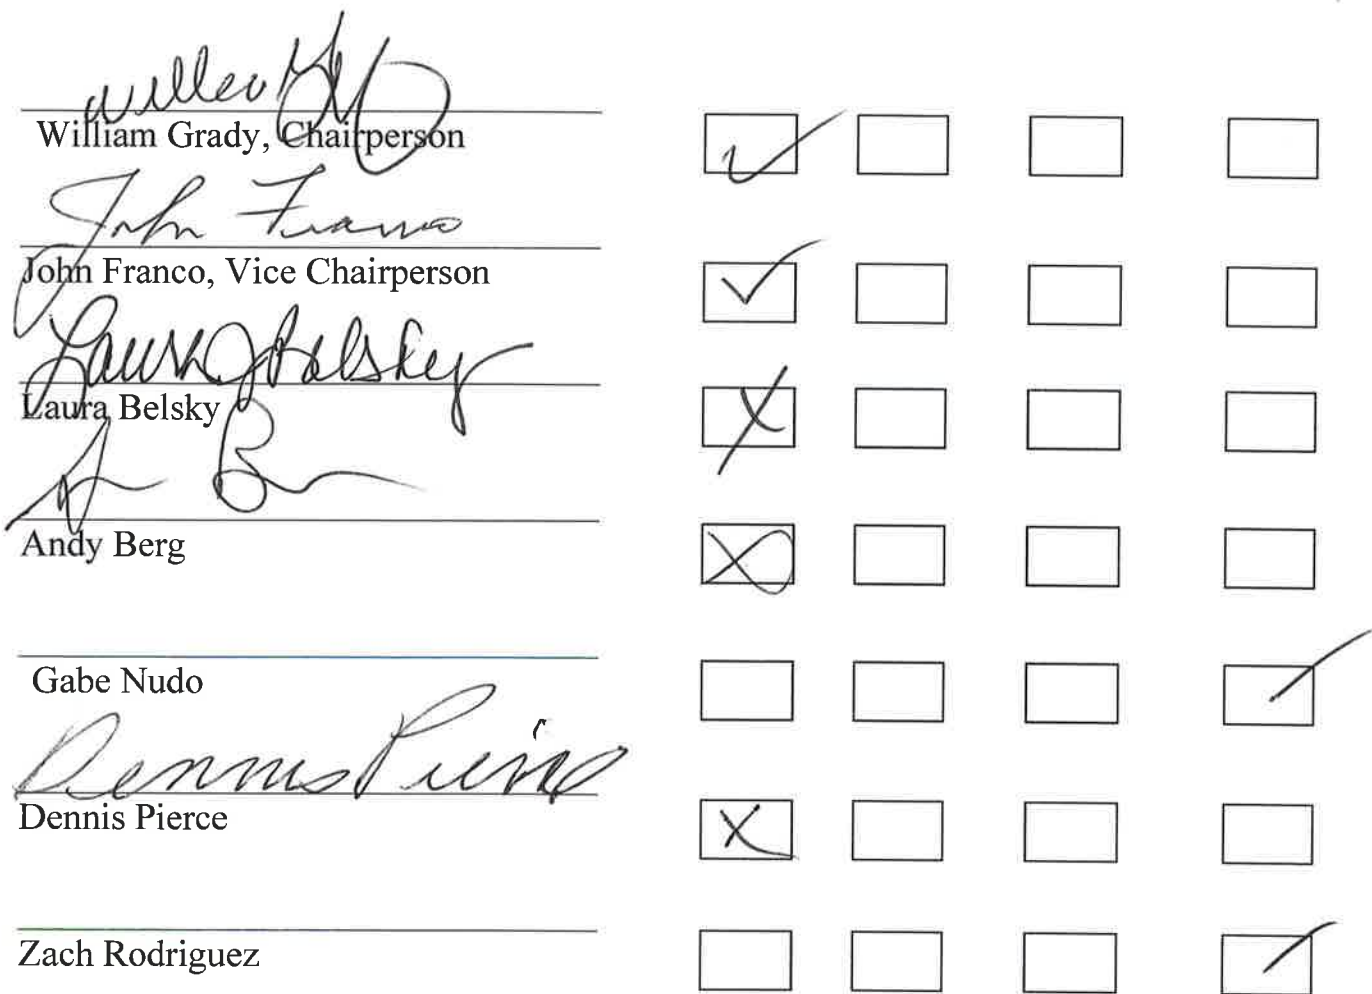 William Grady, Chairperson
John Franco
John Franco, Vice Chairperson
Laura J Belsky
Laura Belsky
Andy Berg
Gabe Nudo
Dennis Pierce
Dennis Pierce
Zach Rodriguez